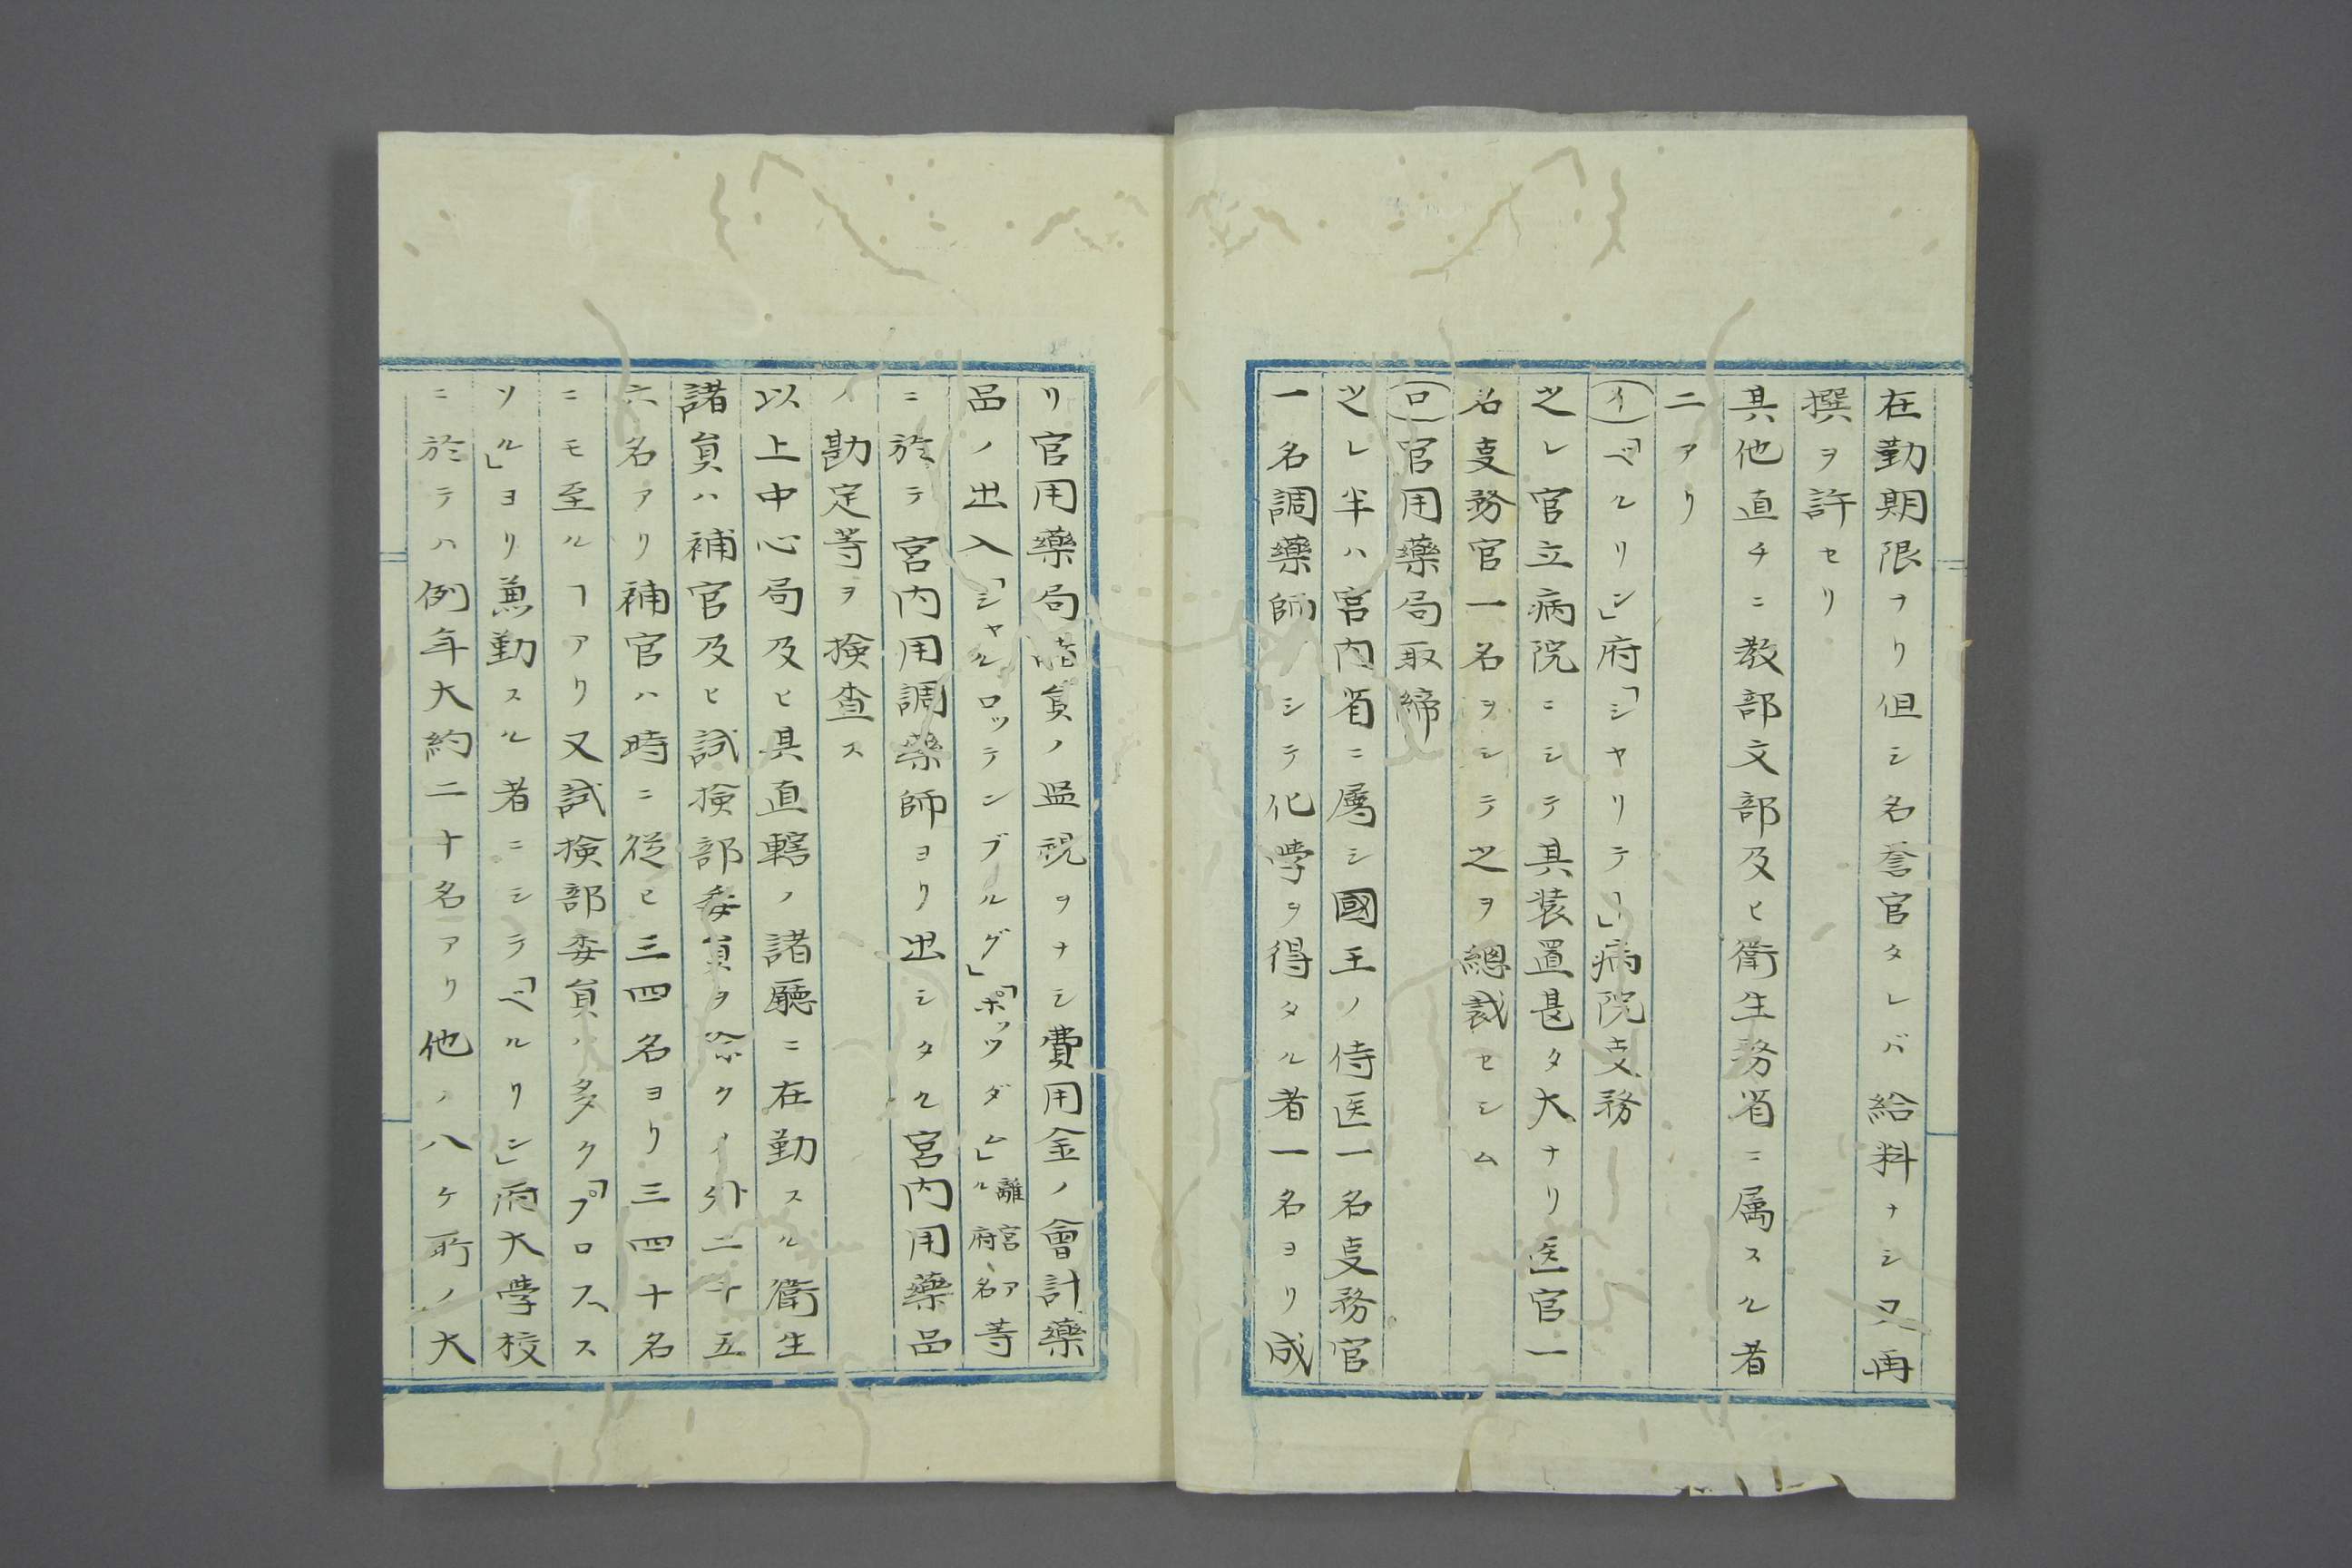 在勤期限ナリ但シ名誉官タレバ給料ナシ又再
撰ヲ許セリ
其他直チニ教部文部及ヒ衛生務省ニ属スル者
二アリ
(イ)「ベルリン」府「シャリテー」病院支務
之レ官立病院ニシテ其装置甚タ大ナリ医官一
名支務官一名ヲシテ之ヲ總裁セシム
(ロ)官用藥局取締
之レ半ハ宮内省ニ属シ國王ノ侍医一名支務官
一名調藥師ニシテ化学ヲ得タル者一名ヨリ成
リ官用藥局諸員ノ監視ヲナシ費用金ノ會計藥
品ノ出入「シャルロッテンブルグ」「ポッツダム」離宮アル府名等
ニ於テ宮内用調藥師ヨリ出シタル宮内用藥品
ノ勘定等ヲ検査ス
以上中心局及ヒ其直轄ノ諸廳ニ在勤スル衛生
諸員ハ補官及ヒ試検部委員ヲ除クノ外二十五
六名アリ補官ハ時ニ從ヒ三四名ヨリ三四十名
ニモ至ルヿアリ又試検部委員ハ多ク「プロフェス
ソル」ヨリ兼勤スル者ニシテ「ベルリン」府大学校
ニ於テハ例年大約二十名アリ他ノ八ケ所ノ大